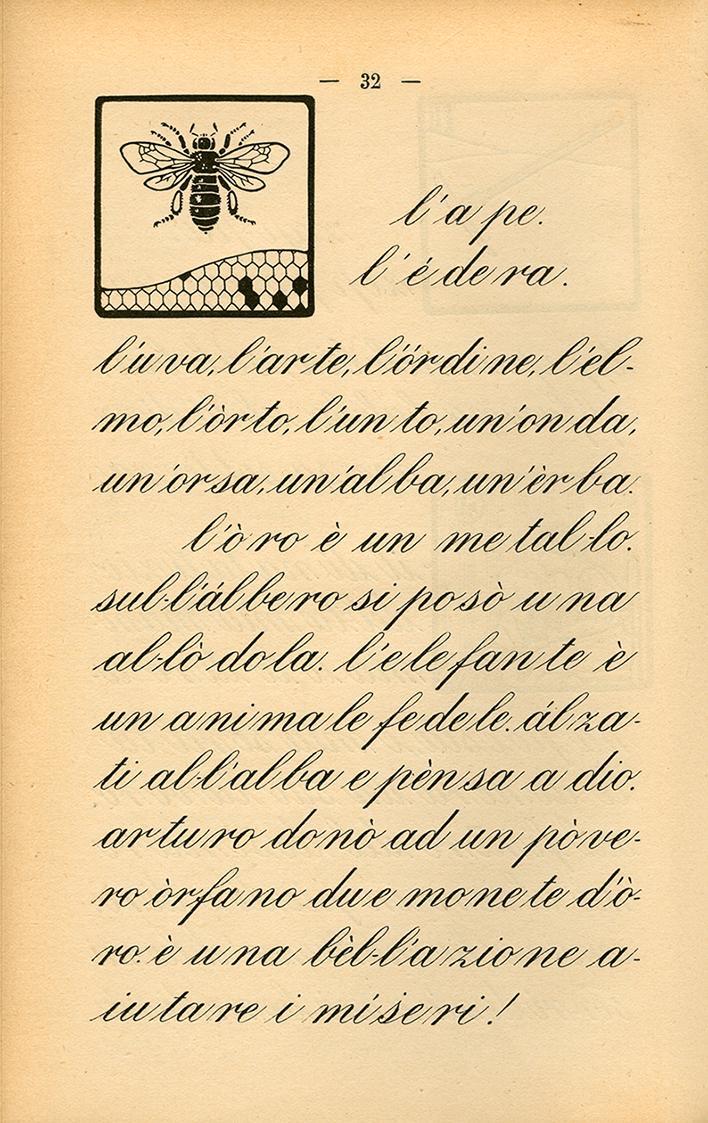 — 32 —
l'a pe.
l'é de ra.
l'u va, l'ar te, l'ór di ne, l'él-
mo, l'òr to, l'un to, un'on da,
un'or sa, un'al ba, un'èr ba.
l'ò ro è un me tal-lo.
sul-l'ál be ro si po sò u na
al-lò do la. l'e le fan te è
un a ni ma le fe de le. ál za-
ti al-l'al ba e pèn sa a dio.
ar tu ro do nò ad un pò ve-
ro òr fa no du e mo ne te d'ò-
ro. è u na bèl-l'a zio ne a-
iu ta re i mí se ri!